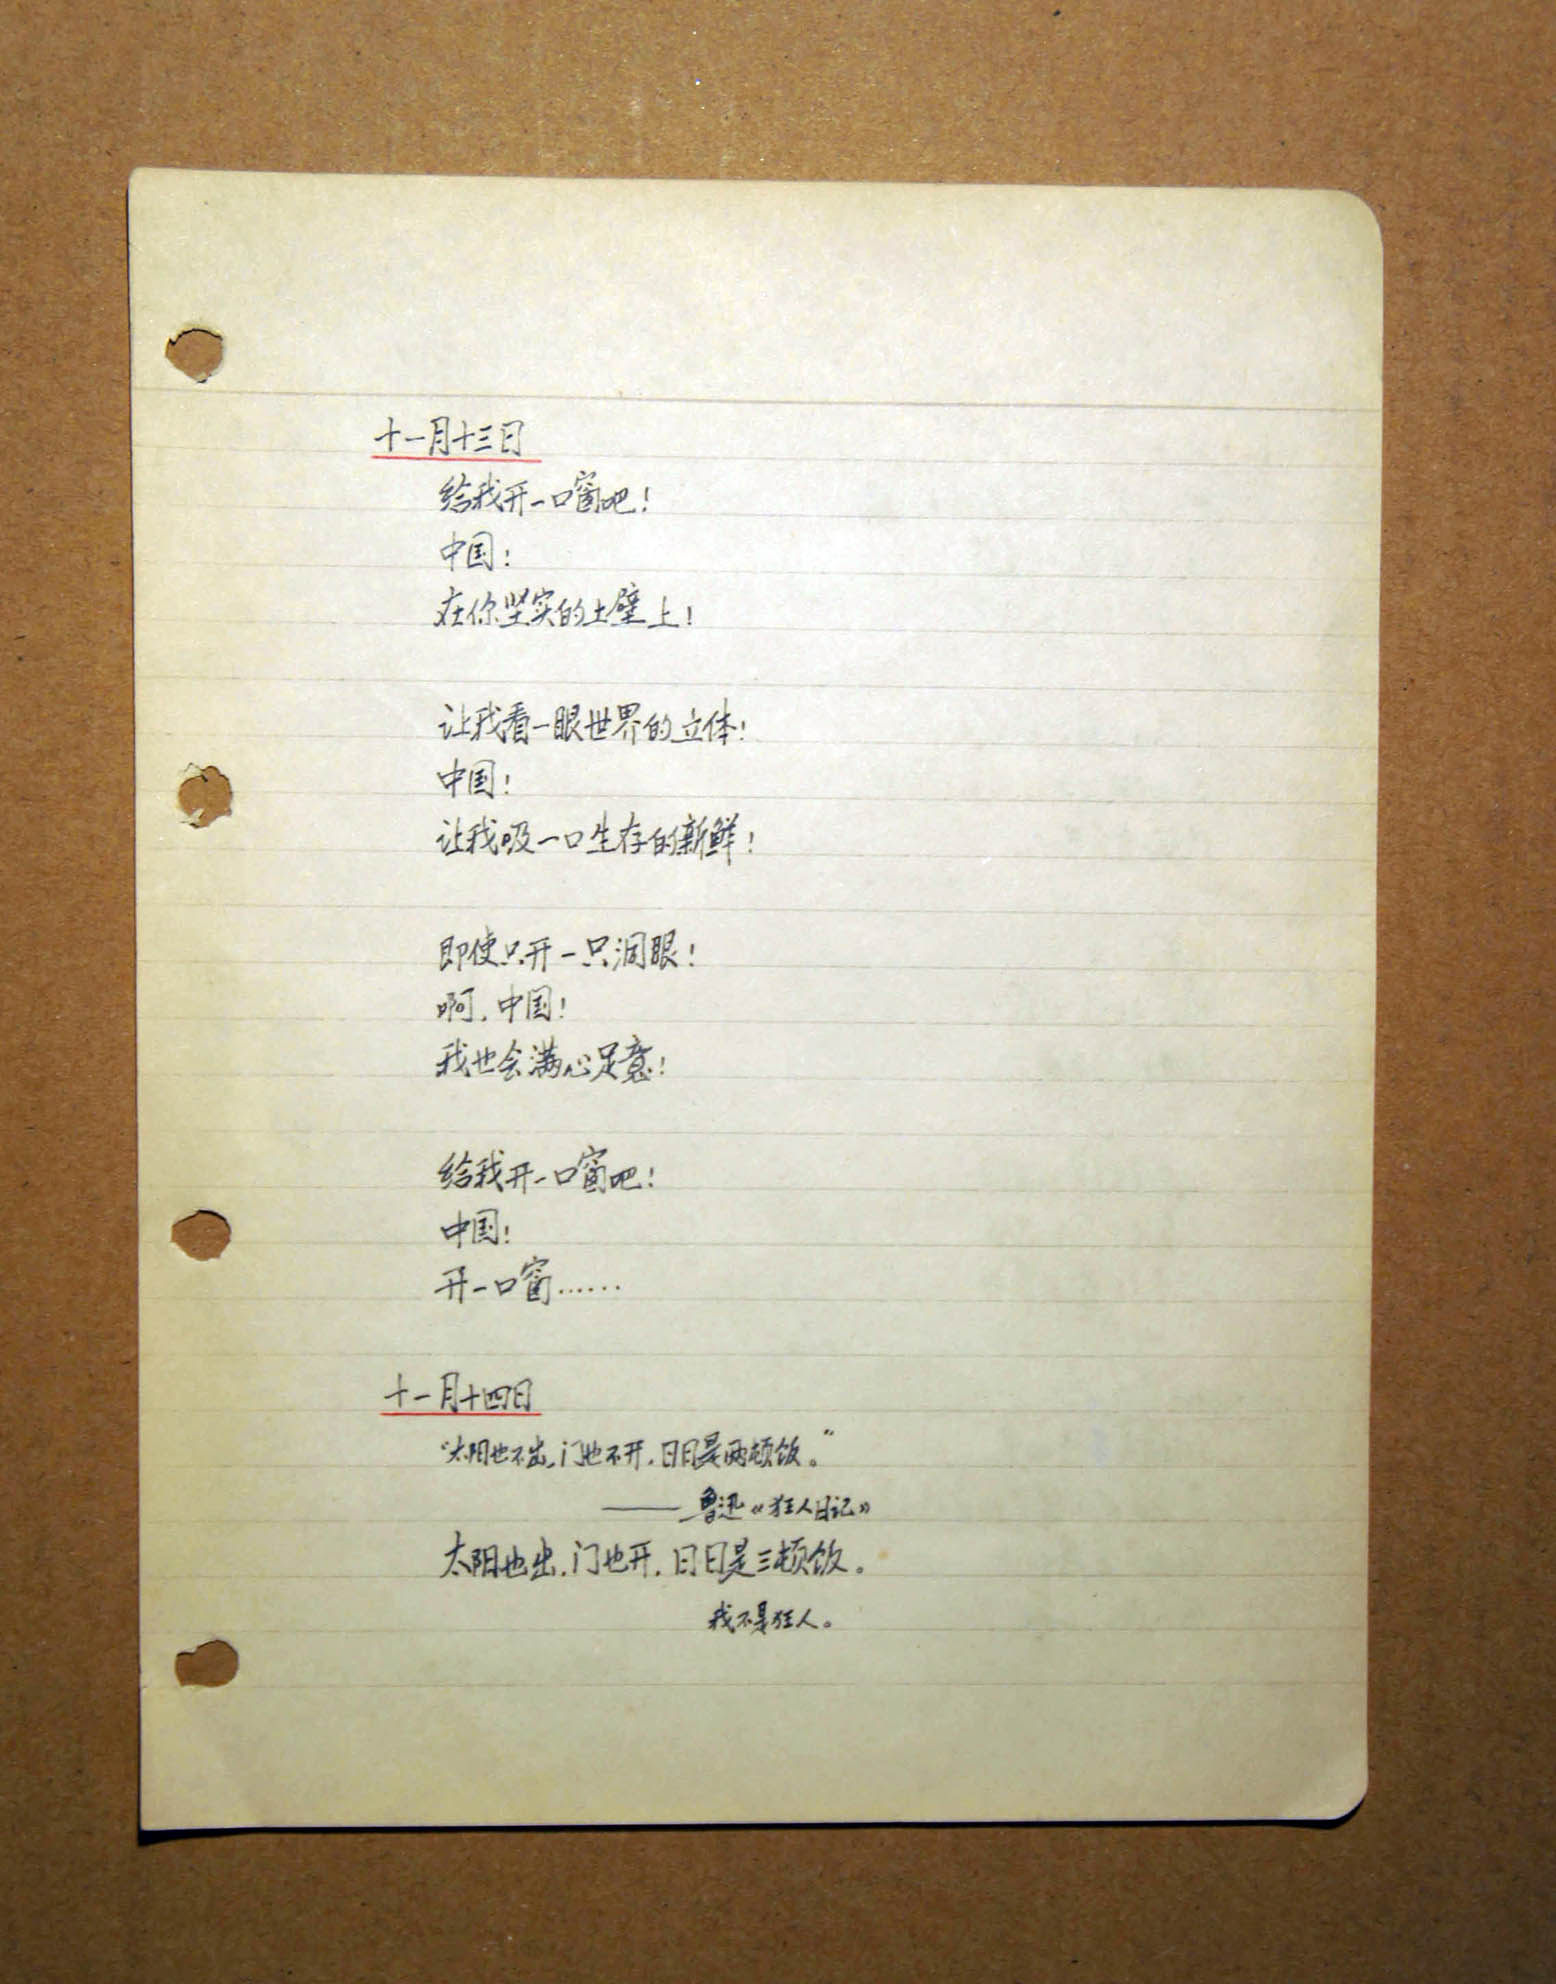 十一月十三日
给我开一口窗吧！
中国！
在你坚实的土壁上！
让我看一眼世界的立体！
中国！
让我吸一口生存的新鲜！
即使只开一只洞眼！
啊，中国！
我也会满心足意！
给我开一口窗吧！
中国！
开一口窗……
十一月十四日
“太阳也不出，门也不开，日日是两顿饭。”
——鲁迅《狂人日记》
太阳也出，门也开，日日是三顿饭。
我不是狂人。